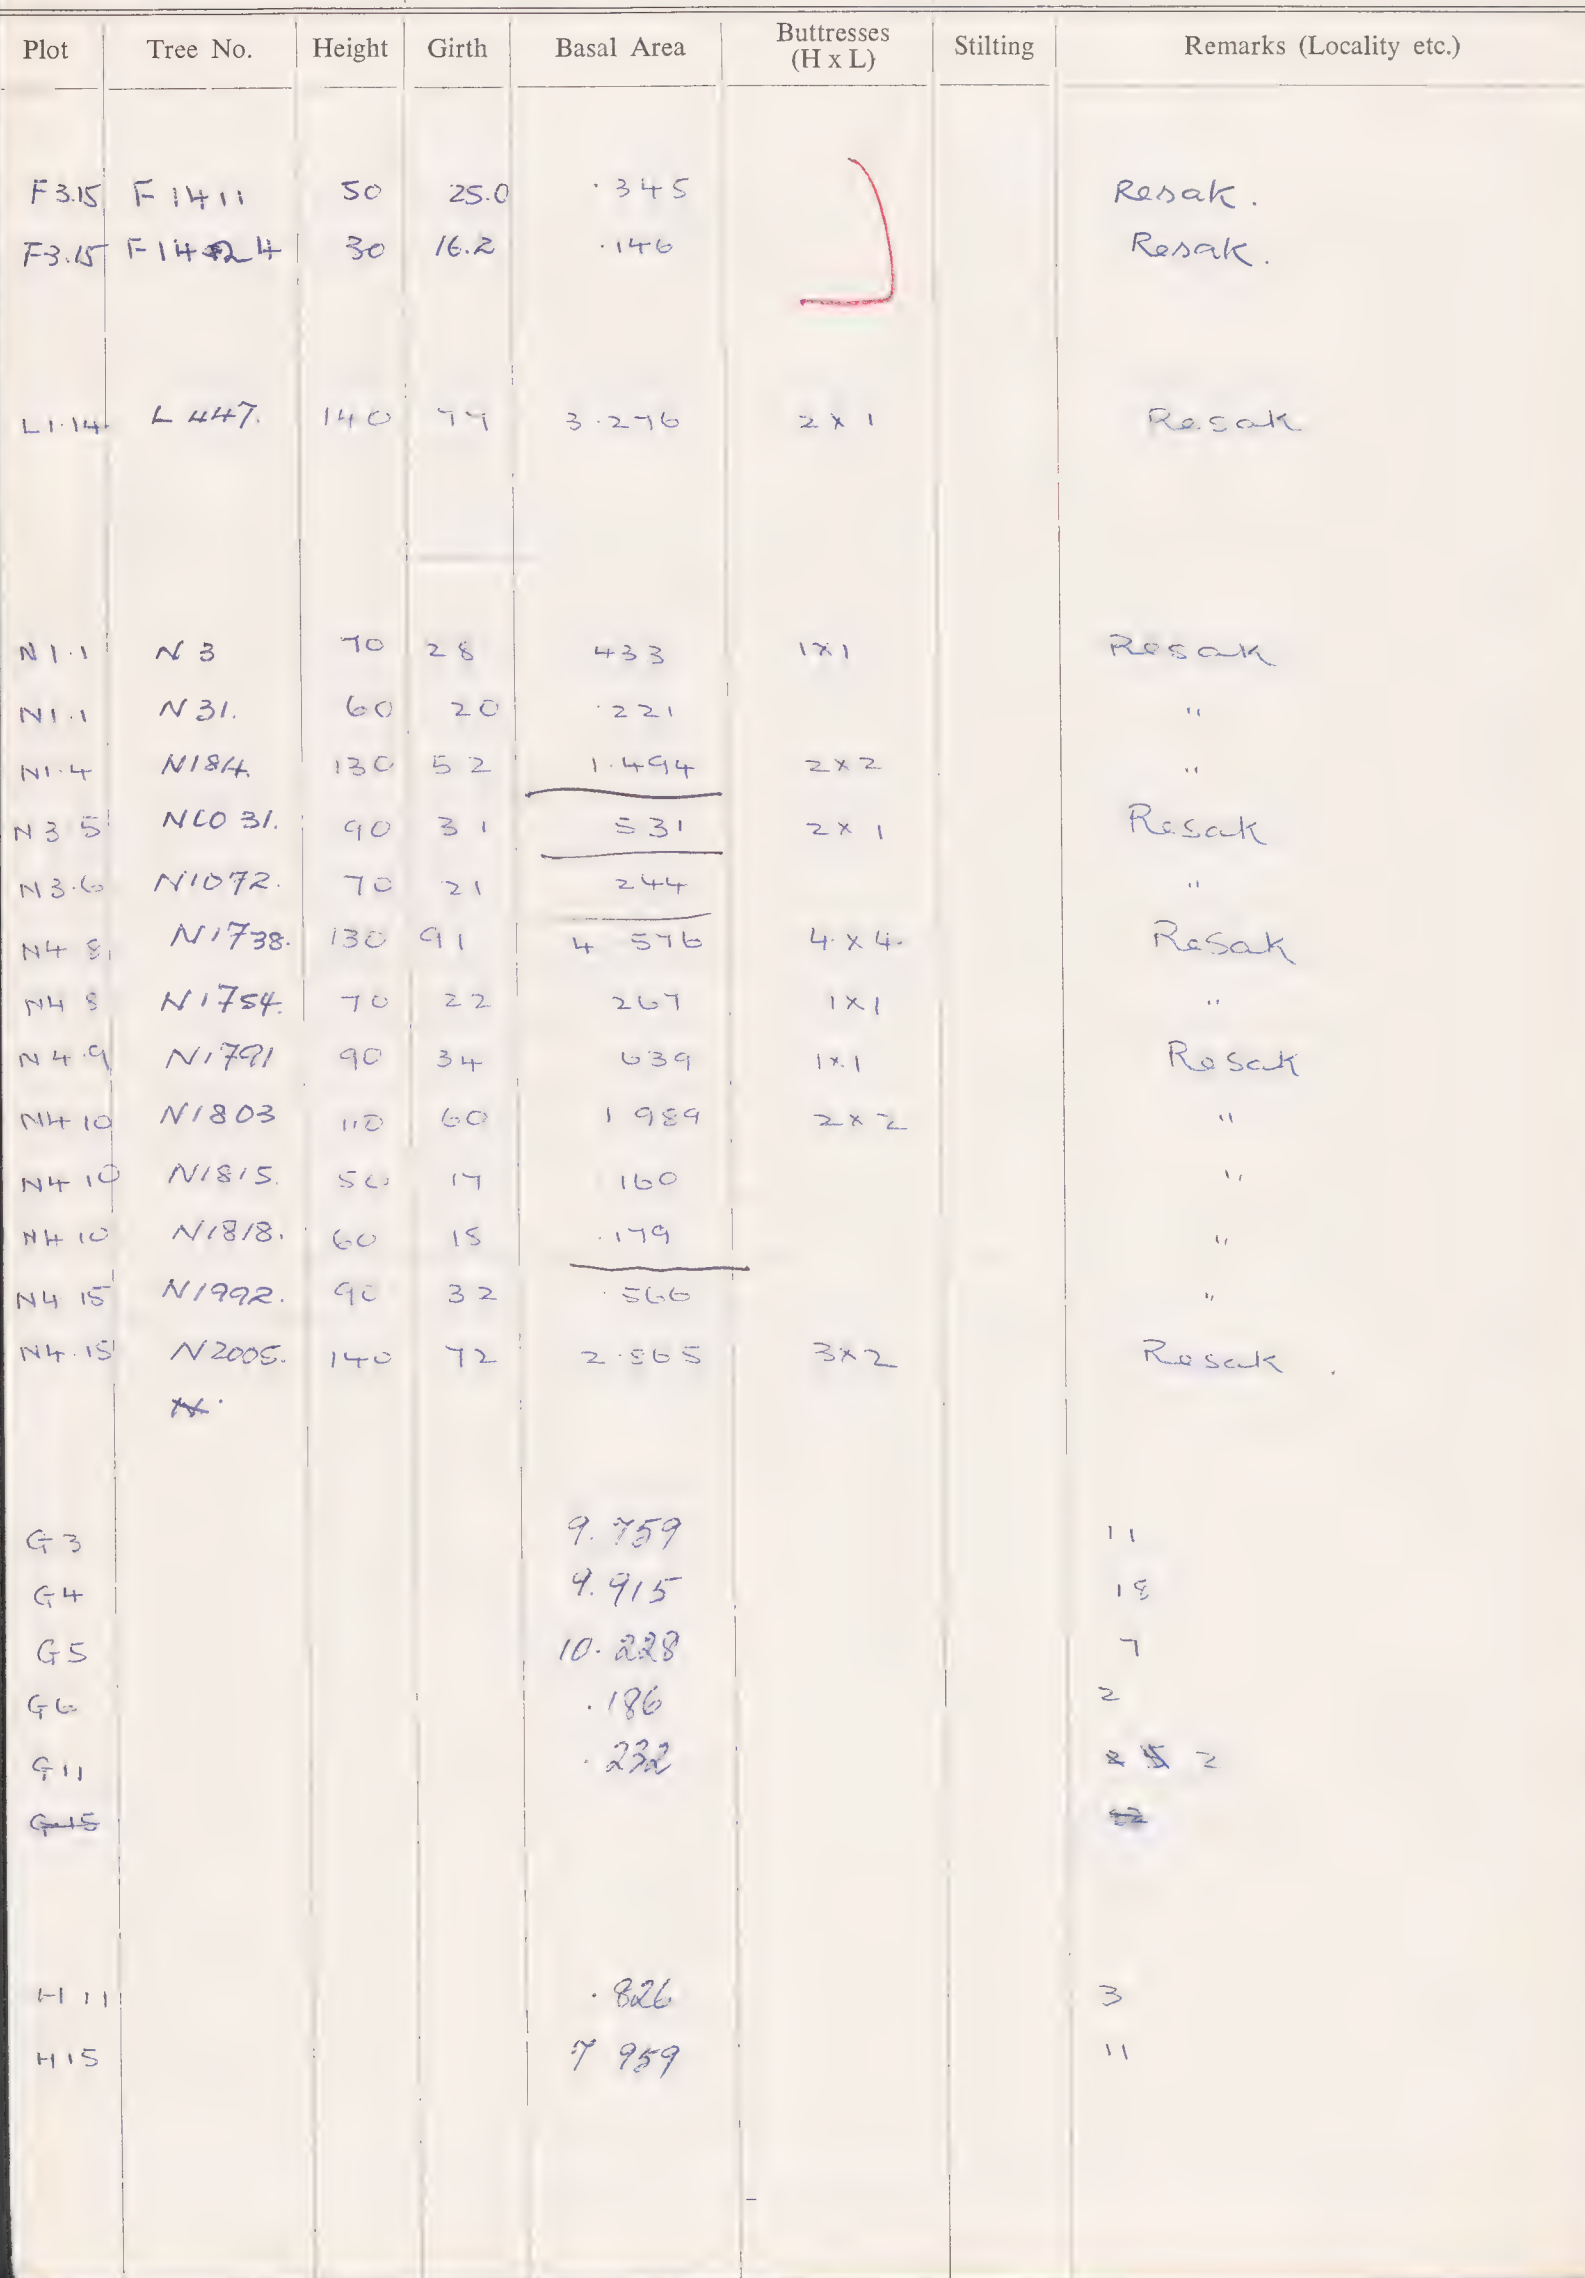 Plot Tree No. Height Girth Basal Area Buttresses (H x L) Stilting Remarks (Locality etc.)
F3.15 F1411 50 25.0 .345 Resak.
F3.15 F1424 30 16.2 .146 Resak.
L1.14 L447. 140 77 3.276 2 x 1 Resak
N1.1 N3 70 28 433 1x1 Resak
N1.1 N31. 60 20 .221 "
N1.4 N184. 130 52 1.494 2x2 "
N3 5 N1031. 90 31 531 2x1 Resak
N3.6 N1072. 70 21 244 "
N4 8 N1738. 130 91 4 576 4.x4. Resak
N4 8 N1754. 70 22 267 1x1 "
N4.9 N1791 90 34 639 1x.1 Resak
N4 10 N1803 110 60 1 989 2x2 "
N4 10 N1815. 50 17 160 "
N4 10 N1818. 60 15 .179 "
N4 15 N1992. 90 32 .566 "
N4.15 N2005. 140 72 2.865 3x2 Resak.
N.
G3 9.759 11
G4 9.915 18
G5 10.228 7
G6 .186 2
G11 .232 2
G15
H11 .826 3
H15 7 959 11